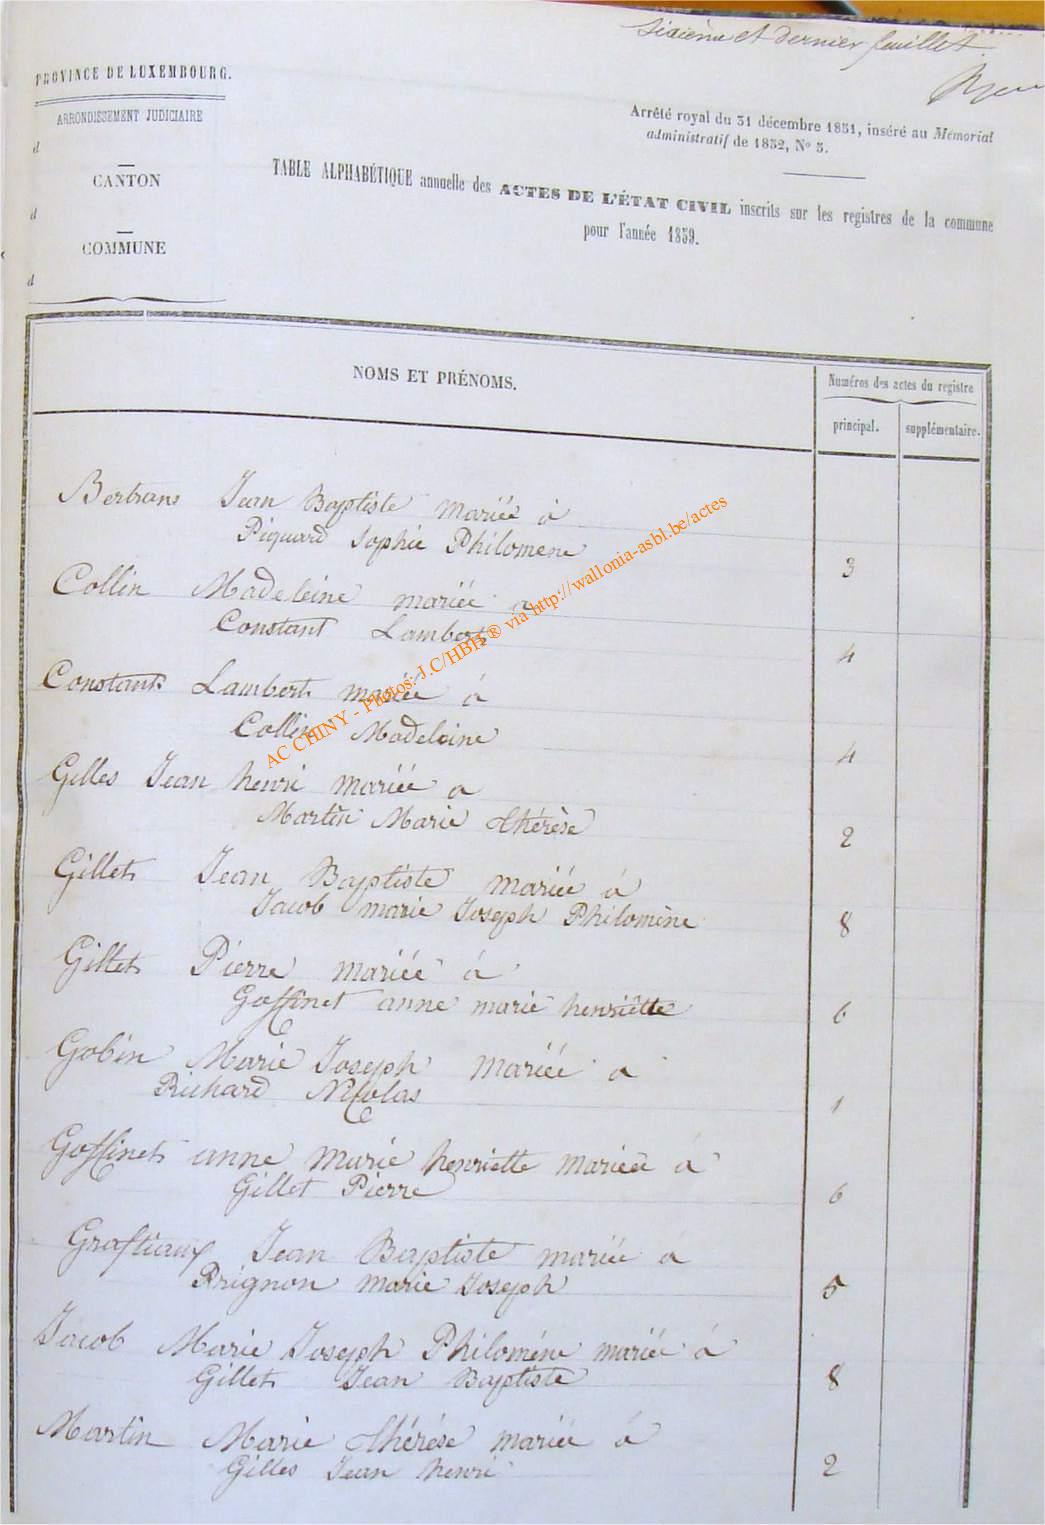 Sixième et dernier feuillet
PROVINCE DE LUXEMBOURG.
ARRONDISSEMENT JUDICIAIRE
d
CANTON
d
COMMUNE
d
Arrêté royal du 31 décembre 1851, inséré au Mémorial
administratif de 1852, No 3.
TABLE ALPHABÉTIQUE annuelle des ACTES DE L'ÉTAT CIVIL inscrits sur les registres de la commune
pour l'année 1859.
NOMS ET PRÉNOMS.
Numéros des actes du registre
principal.
supplémentaire.
Bertrans Jean Baptiste mariée à
Piquard Sophie Philomene 3
Collin Madeleine mariée a
Constant Lambert 4
Constant Lambert mariée à
Collin Madeleine 4
Gilles Jean henri mariée a
Martin Marie thérèse 2
Gillet Jean Baptiste mariée à
Jacob marie Joseph Philomène 8
Gillet Pierre mariée à
Goffinet anne marie henriette 6
Gobin Marie Joseph mariée a
Richard Nicolas 1
Goffinet anne marie henriette mariée à
Gillet Pierre 6
Graftiaux Jean Baptiste mariée à
Prignon marie Joseph 5
Jacob Marie Joseph Philoméne mariée à
Gillet Jean Baptiste 8
Martin Marie thérése mariée à
Gilles Jean henri 2
AC CHINY - Photos: J.C/HBH® via http://wallonia-asbl.be/actes